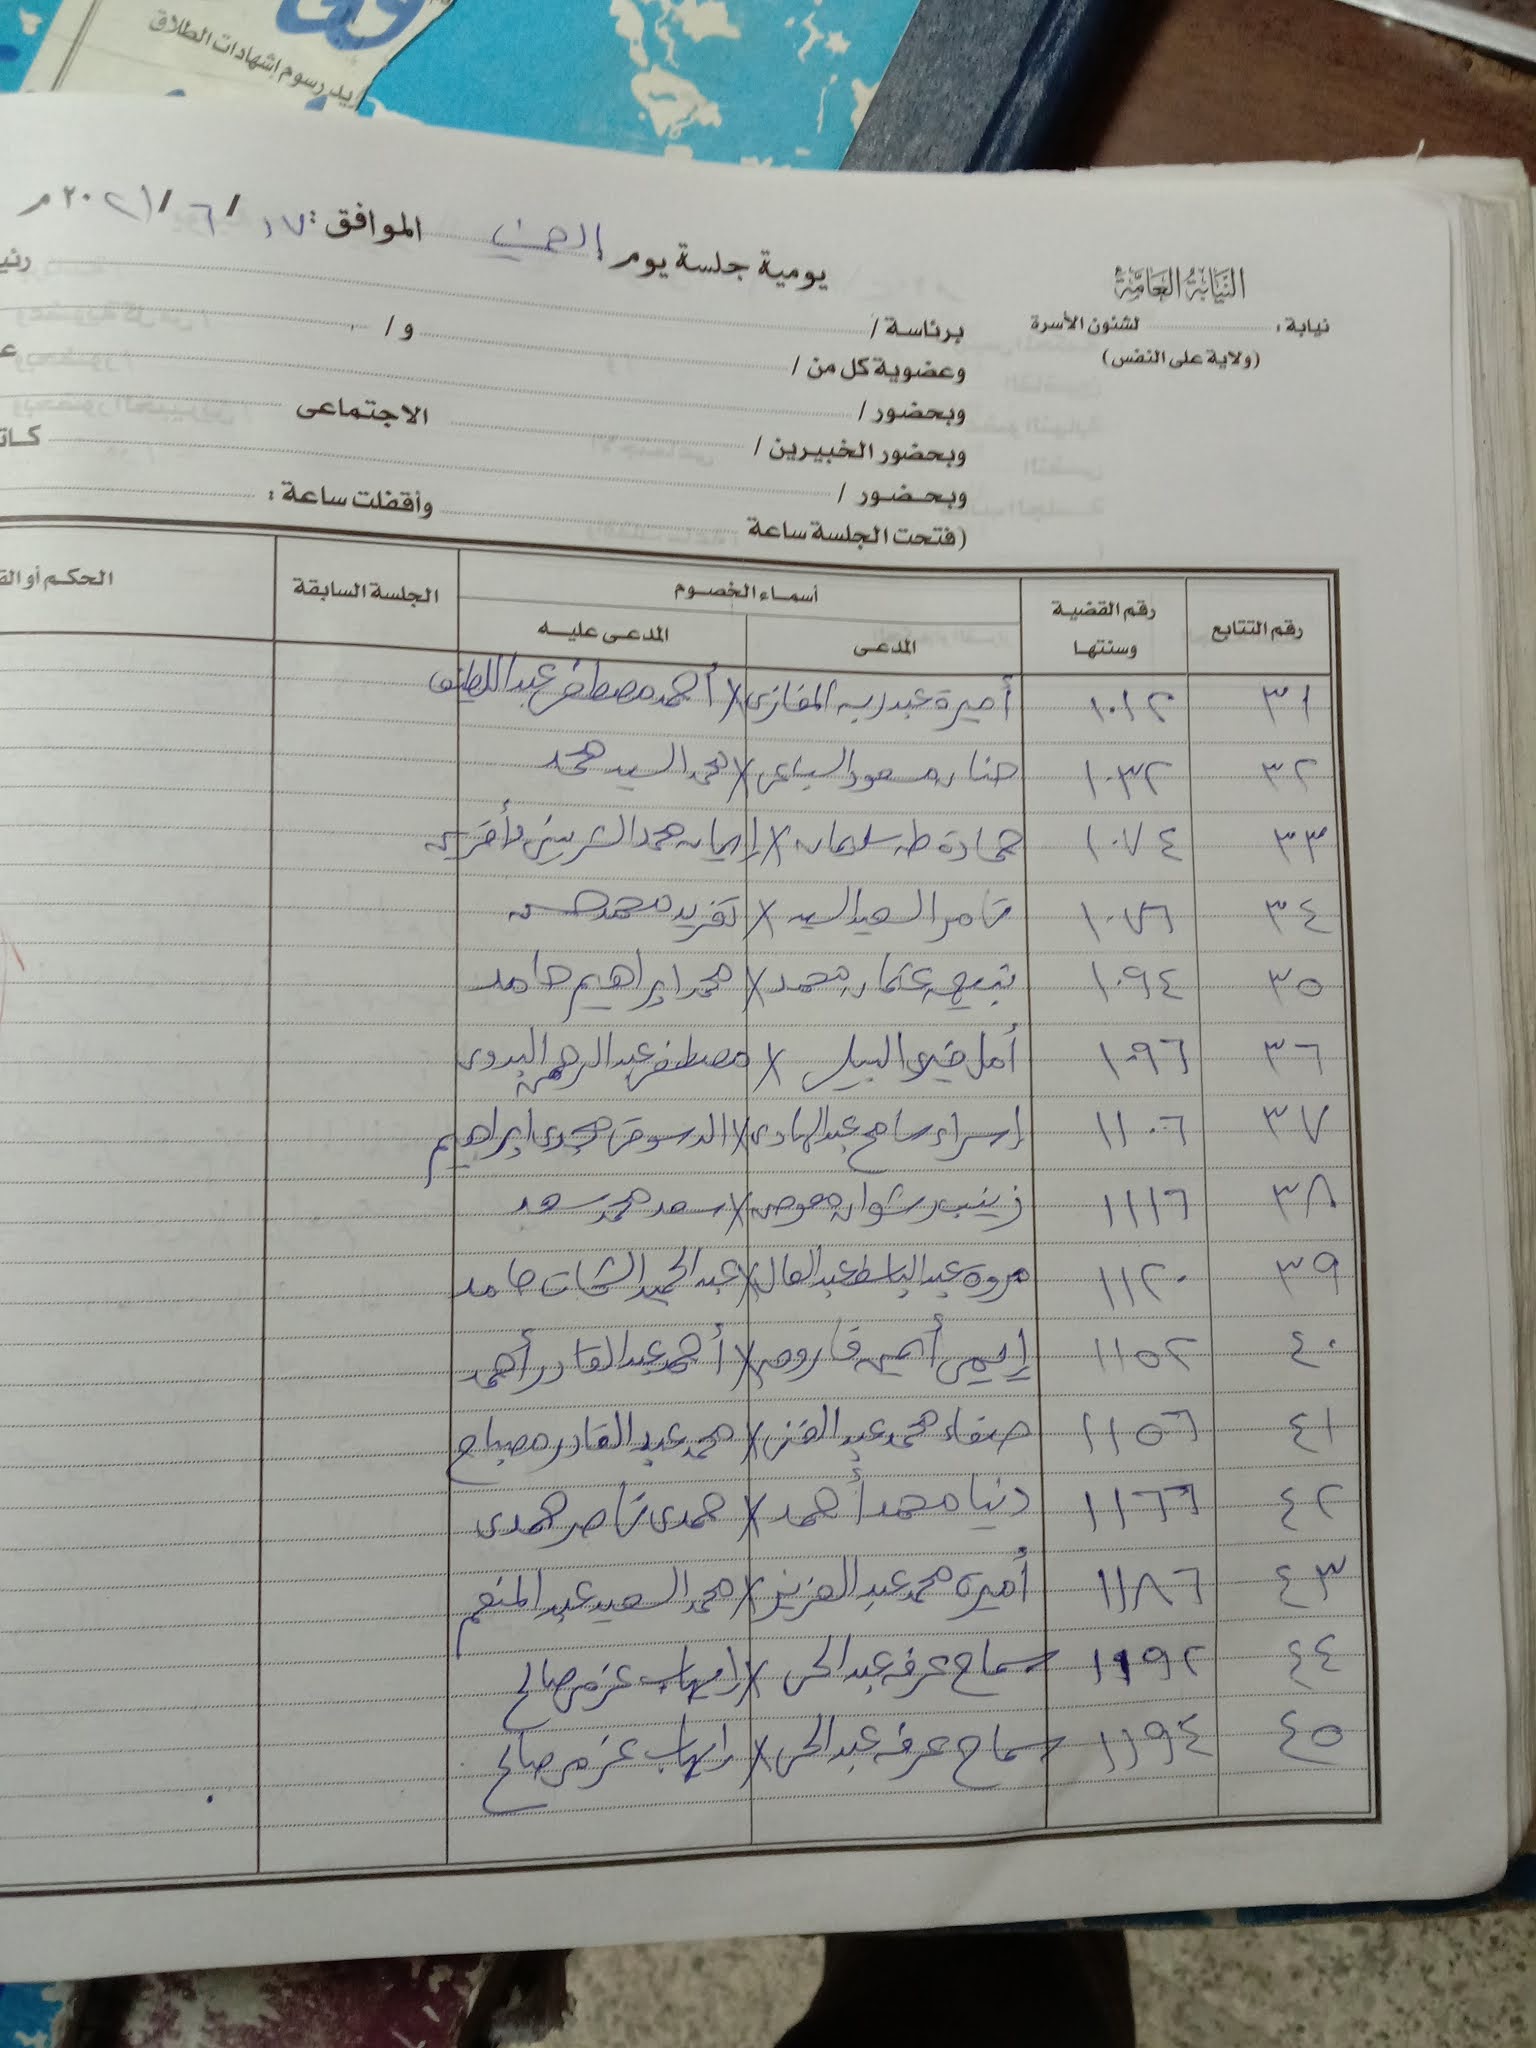 يد رسوم إشهادات الطلاق
النيابة العامة
نيابة : لشئون الأسرة
(ولاية على النفس)
يومية جلسة يوم الخميس الموافق : ١٧ / ٦ / ٢٠٢١ م
برئاسة / و /
وعضوية كل من /
وبحضور / الاجتماعى
وبحضور الخبيرين /
وبحضور /
(فتحت الجلسة ساعة وأقفلت ساعة :
رقم التتابع رقم القضية وسنتها أسماء الخصوم الجلسة السابقة الحكم أو
المدعى المدعى عليه
٣١ ١٠١٢ أميرة عبدربه المغازى X أحمد مصطفى عبد اللطيف
٣٢ ١٠٣٢ حنان مسعود السباعى X محمد السيد محمد
٣٣ ١٠٧٤ حمادة طه سليمان X إيمان محمد الشربينى وأخرين
٣٤ ١٠٧٦ تامر السعيد السيد X تغريد محمد حسن
٣٥ ١٠٩٤ عثمان محمد X محمد إبراهيم حامد
٣٦ ١٠٩٦ أمل خيرى X مصطفى عبد الرحمن البدوى
٣٧ ١١٠٦ إسراء سامح عبد الهادى X الدسوقى مجدى إبراهيم
٣٨ ١١١٦ زينب رشوان معوض X سعد محمد سعد
٣٩ ١١٢٠ مروة عبد الباسط عبد العال X عبد الحميد الشحات حامد
٤٠ ١١٥٢ أمين فاروق X أحمد عبد القادر أحمد
٤١ ١١٥٦ صفاء محمد عبد الغنى X محمد عبد القادر مصباح
٤٢ ١١٦٦ دنيا محمد أحمد X حمدى ناصر حمدى
٤٣ ١١٨٦ أميرة محمد عبد العزيز X محمد السعيد عبد المنعم
٤٤ ١١٩٢ سماح عرفه عبد الحى X إيهاب عزمى صالح
٤٥ ١١٩٤ سماح عرفه عبد الحى X إيهاب عزمى صالح